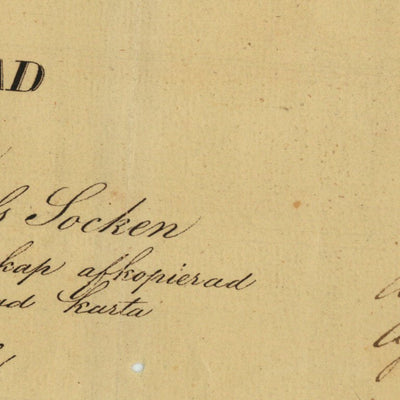 AD
s Socken
kap afkopierad
ad karta